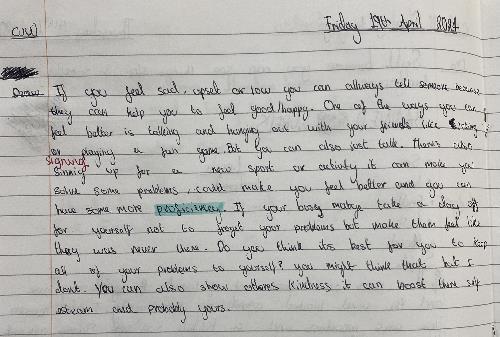 C/W Friday 19th April 2024
If you feel sad, upset or low you can allways tell someone because
they can help you to feel good/happy. One of the ways you can
feel better is talking and hanging out with your friends like
or playing a fun game. But you can also just talk theres also
signing
sinning up for a new sport or activity it can make you
solve some problems, could make you feel better and you can
have some more proficiency. If your busy maybe take a day off
for yourself not to forget your problems but make them feel like
they was never there. Do you think its best for you to keep
all of your problems to yourself? you might think that but I
dont. You can also show others kindness it can boost there self
esteam and probably yours.